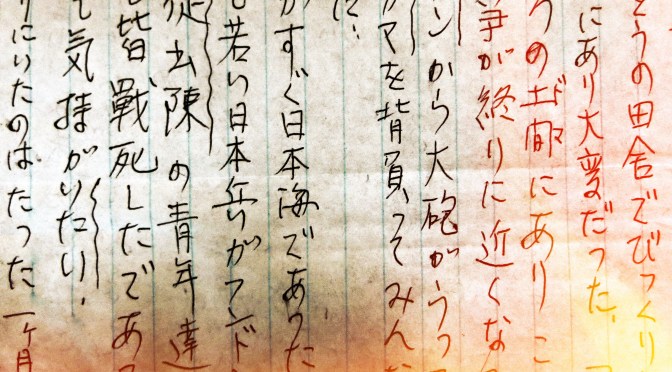 とうの田舎でびっくり
にあり大変だった、
うの土間にあり こ
争が終りに近くな
ンから大砲がうっ
マを背負ってみんな
た、
がすぐ日本海であった
若い日本兵がフンド
徒出陳の青年達
皆戰死したであ
て気持がいたい、
りにいたのはたった一ヶ月